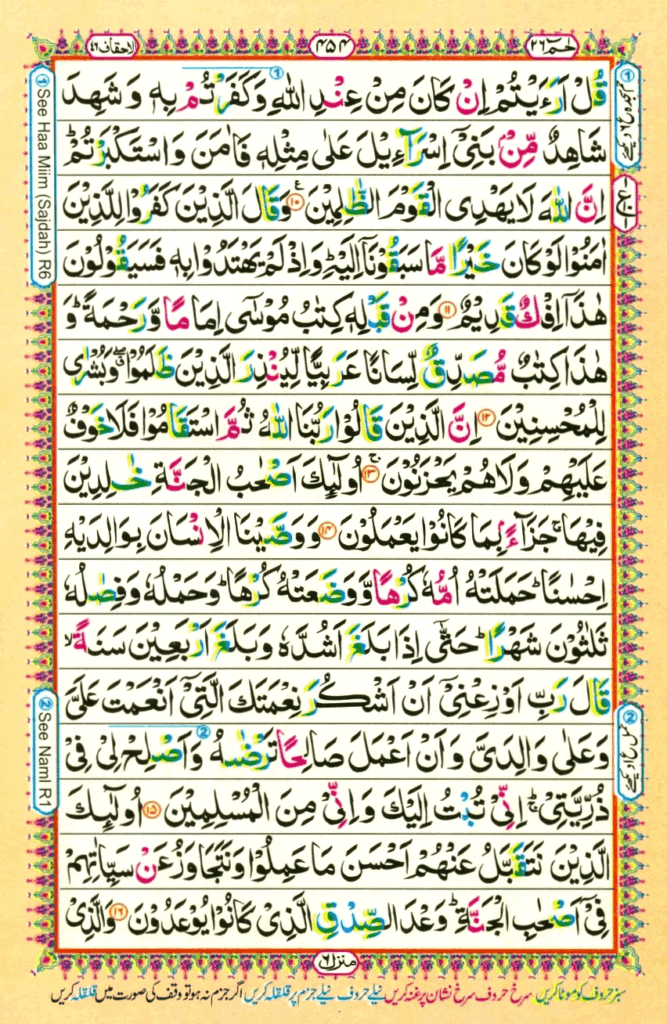 الاحقاف ٤٦
٤٥٤
حٰمٓ ٢٦
قُلْ اَرَءَيْتُمْ اِنْ كَانَ مِنْ عِنْدِ اللّٰهِ وَكَفَرْتُمْ بِهٖ وَشَهِدَ
شَاهِدٌ مِّنْۢ بَنِيْۤ اِسْرَآءِيْلَ عَلٰى مِثْلِهٖ فَاٰمَنَ وَاسْتَكْبَرْتُمْ ؕ
اِنَّ اللّٰهَ لَا يَهْدِى الْقَوْمَ الظّٰلِمِيْنَ ۧ‏ ١٠ وَقَالَ الَّذِيْنَ كَفَرُوْا لِلَّذِيْنَ
اٰمَنُوْا لَوْ كَانَ خَيْرًا مَّا سَبَقُوْنَاۤ اِلَيْهِ ؕ وَاِذْ لَمْ يَهْتَدُوْا بِهٖ فَسَيَقُوْلُوْنَ
هٰذَاۤ اِفْكٌ قَدِيْمٌ ١١ وَمِنْ قَبْلِهٖ كِتٰبُ مُوْسٰٓى اِمَامًا وَّرَحْمَةً ؕ وَ
هٰذَا كِتٰبٌ مُّصَدِّقٌ لِّسَانًا عَرَبِيًّا لِّيُنْذِرَ الَّذِيْنَ ظَلَمُوْا ۖۗ وَبُشْرٰى
لِلْمُحْسِنِيْنَ ١٢ اِنَّ الَّذِيْنَ قَالُوْا رَبُّنَا اللّٰهُ ثُمَّ اسْتَقَامُوْا فَلَا خَوْفٌ
عَلَيْهِمْ وَلَا هُمْ يَحْزَنُوْنَ ۚ ١٣ اُولٰٓئِكَ اَصْحٰبُ الْجَنَّةِ خٰلِدِيْنَ
فِيْهَا ۚ جَزَآءًۢ بِمَا كَانُوْا يَعْمَلُوْنَ ١٤ وَوَصَّيْنَا الْاِنْسَانَ بِوَالِدَيْهِ
اِحْسٰنًا ؕ حَمَلَتْهُ اُمُّهٗ كُرْهًا وَّوَضَعَتْهُ كُرْهًا ؕ وَحَمْلُهٗ وَفِصٰلُهٗ
ثَلٰثُوْنَ شَهْرًا ؕ حَتّٰٓى اِذَا بَلَغَ اَشُدَّهٗ وَبَلَغَ اَرْبَعِيْنَ سَنَةً ۙ
قَالَ رَبِّ اَوْزِعْنِيْۤ اَنْ اَشْكُرَ نِعْمَتَكَ الَّتِيْۤ اَنْعَمْتَ عَلَيَّ
وَعَلٰى وَالِدَيَّ وَاَنْ اَعْمَلَ صَالِحًا تَرْضٰىهُ وَاَصْلِحْ لِيْ فِيْ
ذُرِّيَّتِيْ ؕۚ اِنِّيْ تُبْتُ اِلَيْكَ وَاِنِّيْ مِنَ الْمُسْلِمِيْنَ ١٥ اُولٰٓئِكَ
الَّذِيْنَ نَتَقَبَّلُ عَنْهُمْ اَحْسَنَ مَا عَمِلُوْا وَنَتَجَاوَزُ عَنْ سَيِّاٰتِهِمْ
فِيْۤ اَصْحٰبِ الْجَنَّةِ ؕ وَعْدَ الصِّدْقِ الَّذِيْ كَانُوْا يُوْعَدُوْنَ ١٦ وَالَّذِيْ
① See Haa Miim (Sajdah) R6
② See Naml R1
منزل ٦
سبز حروف کو موٹا کریں سرخ حروف سرخ نشان پر غنہ کریں نیلے حروف نیلے جزم پر قلقلہ کریں اگر جزم نہ ہو تو وقف کی صورت میں قلقلہ کریں